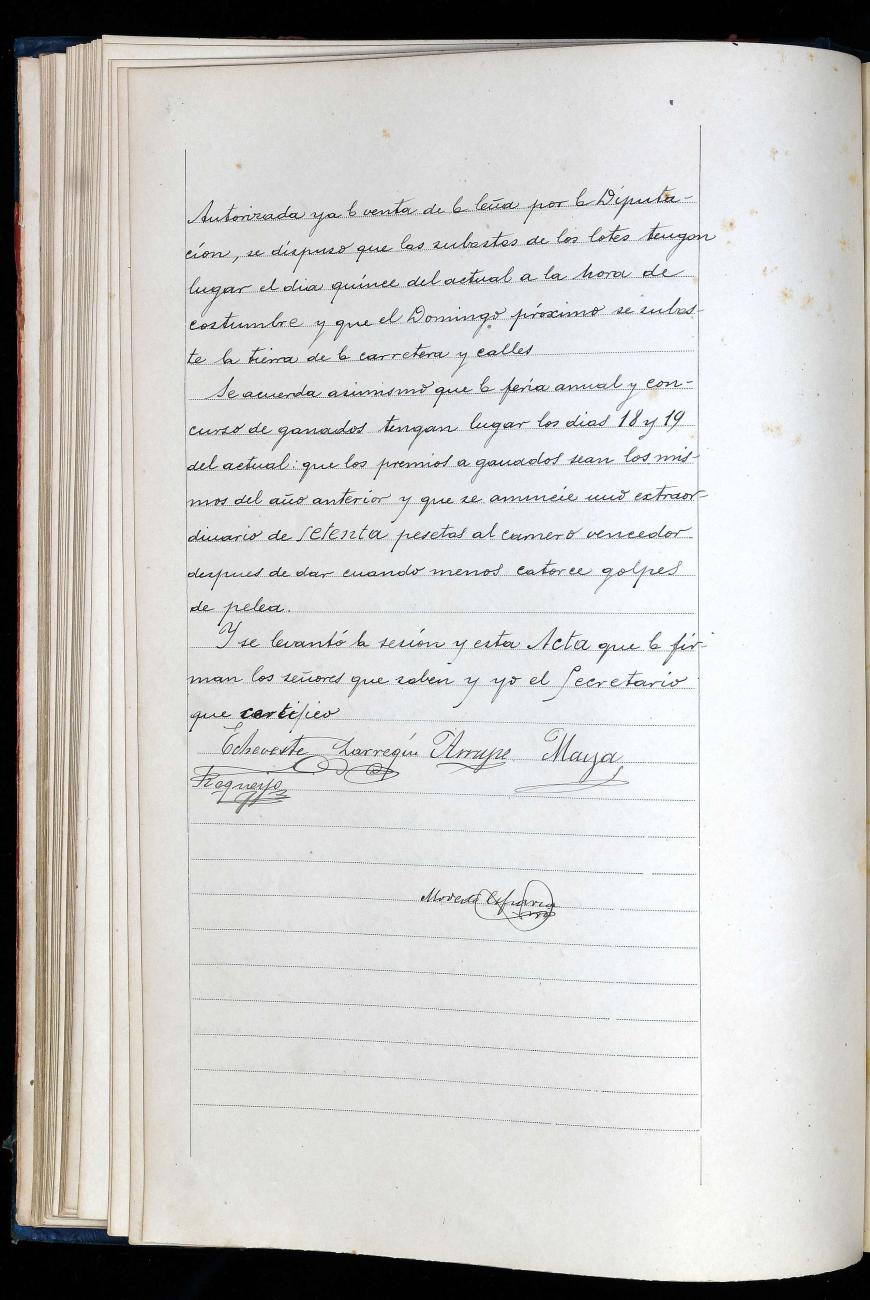 Autorizada ya la venta de la leña por la Diputa-
cion, se dispuso que las subastas de los lotes tengan
lugar el dia quince del actual a la hora de
costumbre y que el Domingo próximo se subas-
te la tierra de la carretera y calles
Se acuerda asimismo que la feria anual y con-
curso de ganados tengan lugar los dias 18 y 19
del actual: que los premios a ganados sean los mis-
mos del año anterior y que se anuncie uno extraor-
dinario de setenta pesetas al carnero vencedor
despues de dar cuando menos catorce golpes
de pelea.
Y se levantó la sesión y esta Acta que la fir-
man los señores que saben y yo el Secretario
que certifico
Echeveste Larregui Arrupe Maya
Requejo